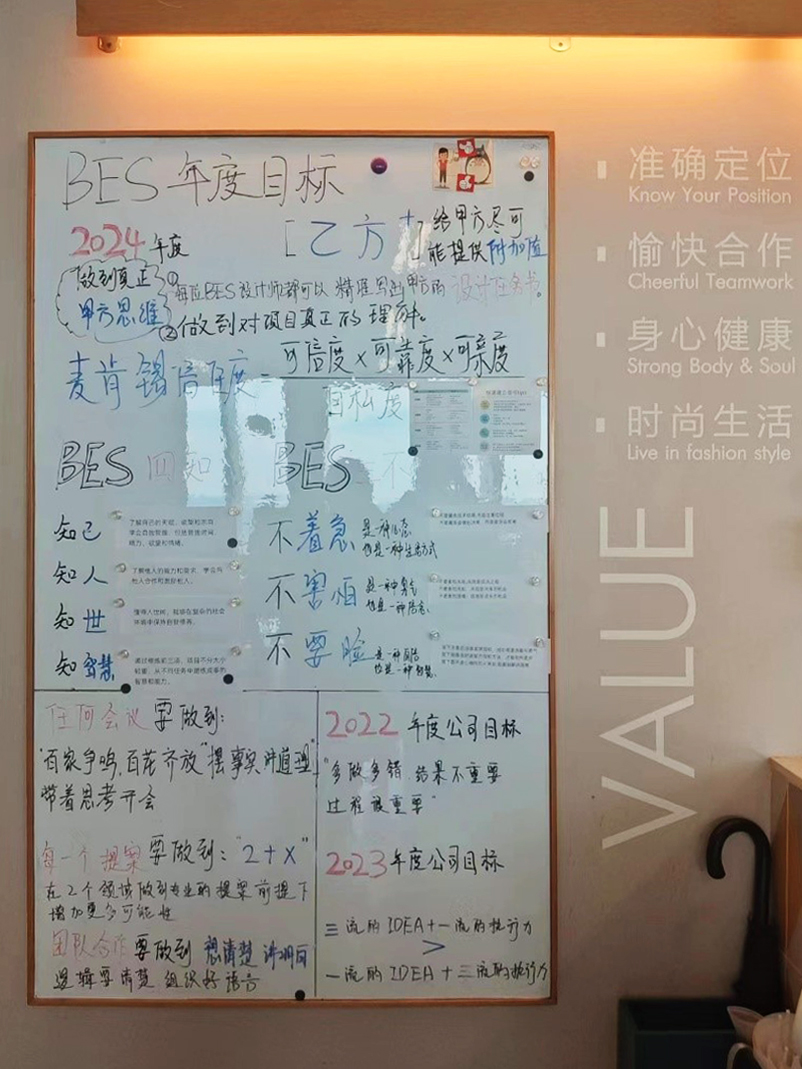 BES 年度目标
2024 年度
[乙方+] 给甲方尽可
能提供附加值
做到真正
甲方思维
① 每位BES设计师都可以精准写出甲方的设计任务书。
② 做到对项目真正的理解。
麦肯锡信任度 = 可信度 × 可靠度 × 可亲度
自私度
BES 四知
知己
了解自己的天赋、欲望和志向
知人
了解他人的能力和需求，学会与
他人合作和激励他人。
知世
懂得人世间，能够在复杂的社会
环境中保持自我修养。
知智慧
BES 三不
不着急 是一种心态
也是一种生活方式
不害怕 是一种勇气
也是一种信念
不要脸 是一种
也是一种智慧
任何会议要做到：
"百家争鸣，百花齐放" "摆事实 讲道理"
带着思考开会
每一个提案要做到："2+X"
在2个领域做到专业的提案前提下
增加更多可能性
团队合作要做到 想清楚 讲明白
逻辑要清楚 组织好语言
2022 年度公司目标
"多做多错 结果不重要
过程很重要"
2023年度公司目标
三流的IDEA+一流的执行力
>
一流的IDEA+三流的执行力
准确定位
Know Your Position
愉快合作
Cheerful Teamwork
身心健康
Strong Body & Soul
时尚生活
Live in fashion style
VALUE